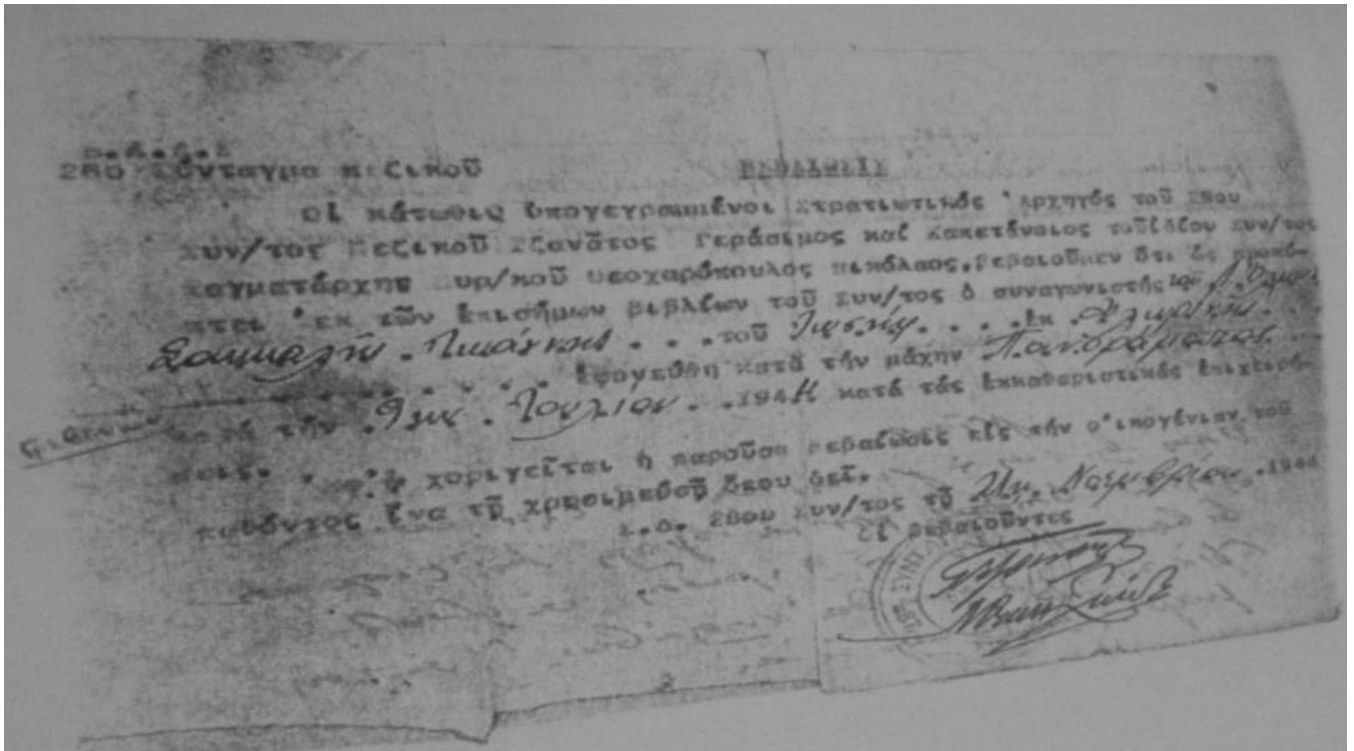 28ο Σύνταγμα πεζικοῦ ΒΕΒΑΙΩΣΙΣ
Οἱ κάτωθις ὑπογεγραμμένοι Στρατιωτικός Ἀρχηγός τοῦ 28ου
Συν/τος Πεζικοῦ Τζανᾶτος Γεράσιμος καί Καπετάνειος τοῦ ἰδίου Συν/τος
Ταγματάρχης Πυρ/κοῦ Θεοχαρόπουλος Νικόλαος, βεβαιοῦμεν ὅτι ὡς προκύ-
πτει ἐκ τῶν ἐπισήμων βιβλίων τοῦ Συν/τος ὁ συναγωνιστής τοῦ
τοῦ Ἰωσήφ . . . ἐκ
. . . . ἐφονεύθη κατά τήν μάχην Πανδράματος
κατά τήν . 9ην . Ἰουλίου . .1944 κατά τάς ἐκκαθαριστικάς ἐπιχειρή-
σεις. χοριγεῖται ἡ παροῦσα βεβαίωσις εἰς τήν οἰκογένιαν τοῦ
παθόντος ἵνα τῇ χρησιμεύσῃ ὅπου δεῖ.
28ου Συν/τος τῇ Νοεμβρίου .1944
Οἱ βεβαιοῦντες